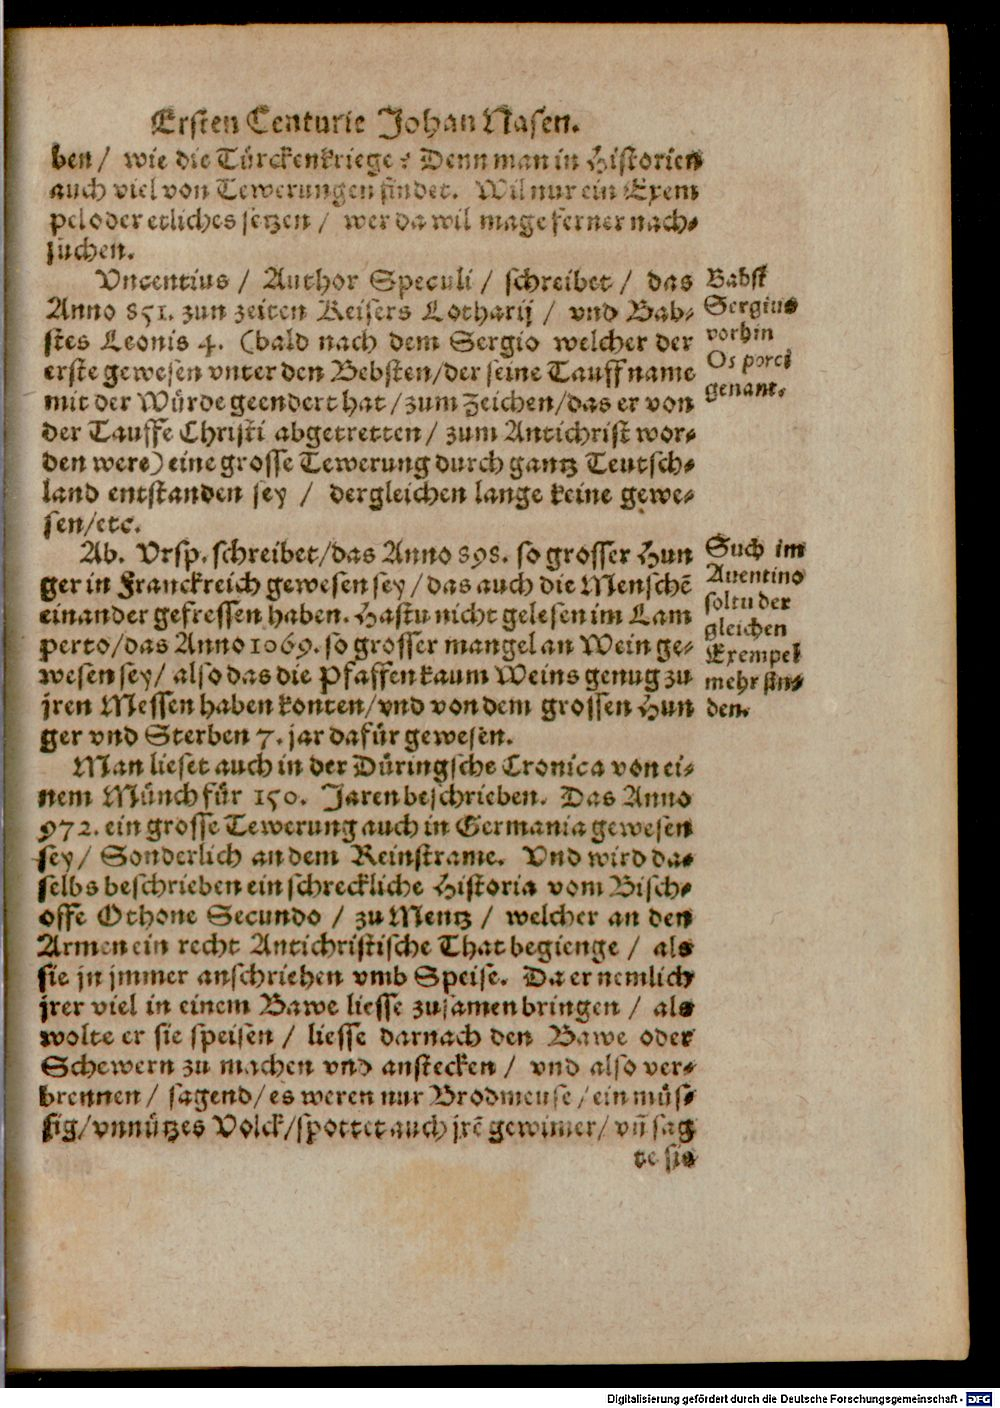 Ersten Centurie Johan Nasen.
ben / wie die Türckenkriege : Denn man in Historien
auch viel von Tewerungen findet. Wil nur ein Exem
pel oder etliches setzen / wer da wil mage ferner nach-
suchen.
Vncentius / Author Speculi / schreibet / das
Anno 851. zun zeiten Keisers Lotharij / vnd Bab-
stes Leonis 4. (bald nach dem Sergio welcher der
erste gewesen vnter den Bebsten / der seine Tauffname
mit der Würde geendert hat / zum Zeichen / das er von
der Tauffe Christi abgetretten / zum Antichrist wor-
den were) eine grosse Tewerung durch gantz Teutsch-
land entstanden sey / dergleichen lange keine gewe-
sen / etc.
Babst
Sergius
vorhin
Os porci
genant.
Ab. Vrsp. schreibet / das Anno 898. so grosser Hun
ger in Franckreich gewesen sey / das auch die Menschē
einander gefressen haben. Hastu nicht gelesen im Lam
perto / das Anno 1069. so grosser mangel an Wein ge-
wesen sey / also das die Pfaffen kaum Weins genug zu
jren Messen haben konten / vnd von dem grossen Hun
ger vnd Sterben 7. jar dafür gewesen.
Such im
Auentino
soltu der
gleichen
Exempel
mehr fin-
den.
Man lieset auch in der Düringsche Cronica von ei-
nem Münch für 150. Jaren beschrieben. Das Anno
972. ein grosse Tewerung auch in Germania gewesen
sey / Sonderlich an dem Reinstrame. Vnd wird da-
selbs beschrieben ein schreckliche Historia vom Bisch-
offe Othone Secundo / zu Mentz / welcher an den
Armen ein recht Antichristische That begienge / als
sie jn jmmer anschriehen vmb Speise. Da er nemlich
jrer viel in einem Bawe liesse zusamen bringen / als
wolte er sie speisen / liesse darnach den Bawe oder
Schewern zu machen vnd anstecken / vnd also ver-
brennen / sagend / es weren nur Brodmeuse / ein müs-
sig / vnnützes Volck / spottet auch jrē gewimer / vñ sag
te sie
Digitalisierung gefördert durch die Deutsche Forschungsgemeinschaft - DFG